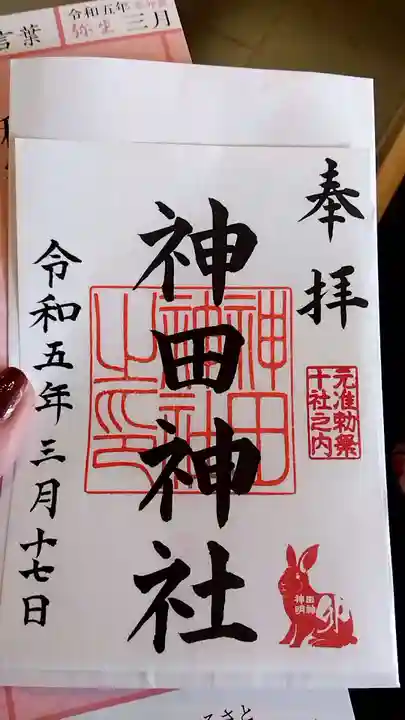 言葉
令和五年
弥生
三月
奉拝
元准勅祭
十社之内
神田神社
神田神社之印
令和五年三月十七日
神田
明神
卯